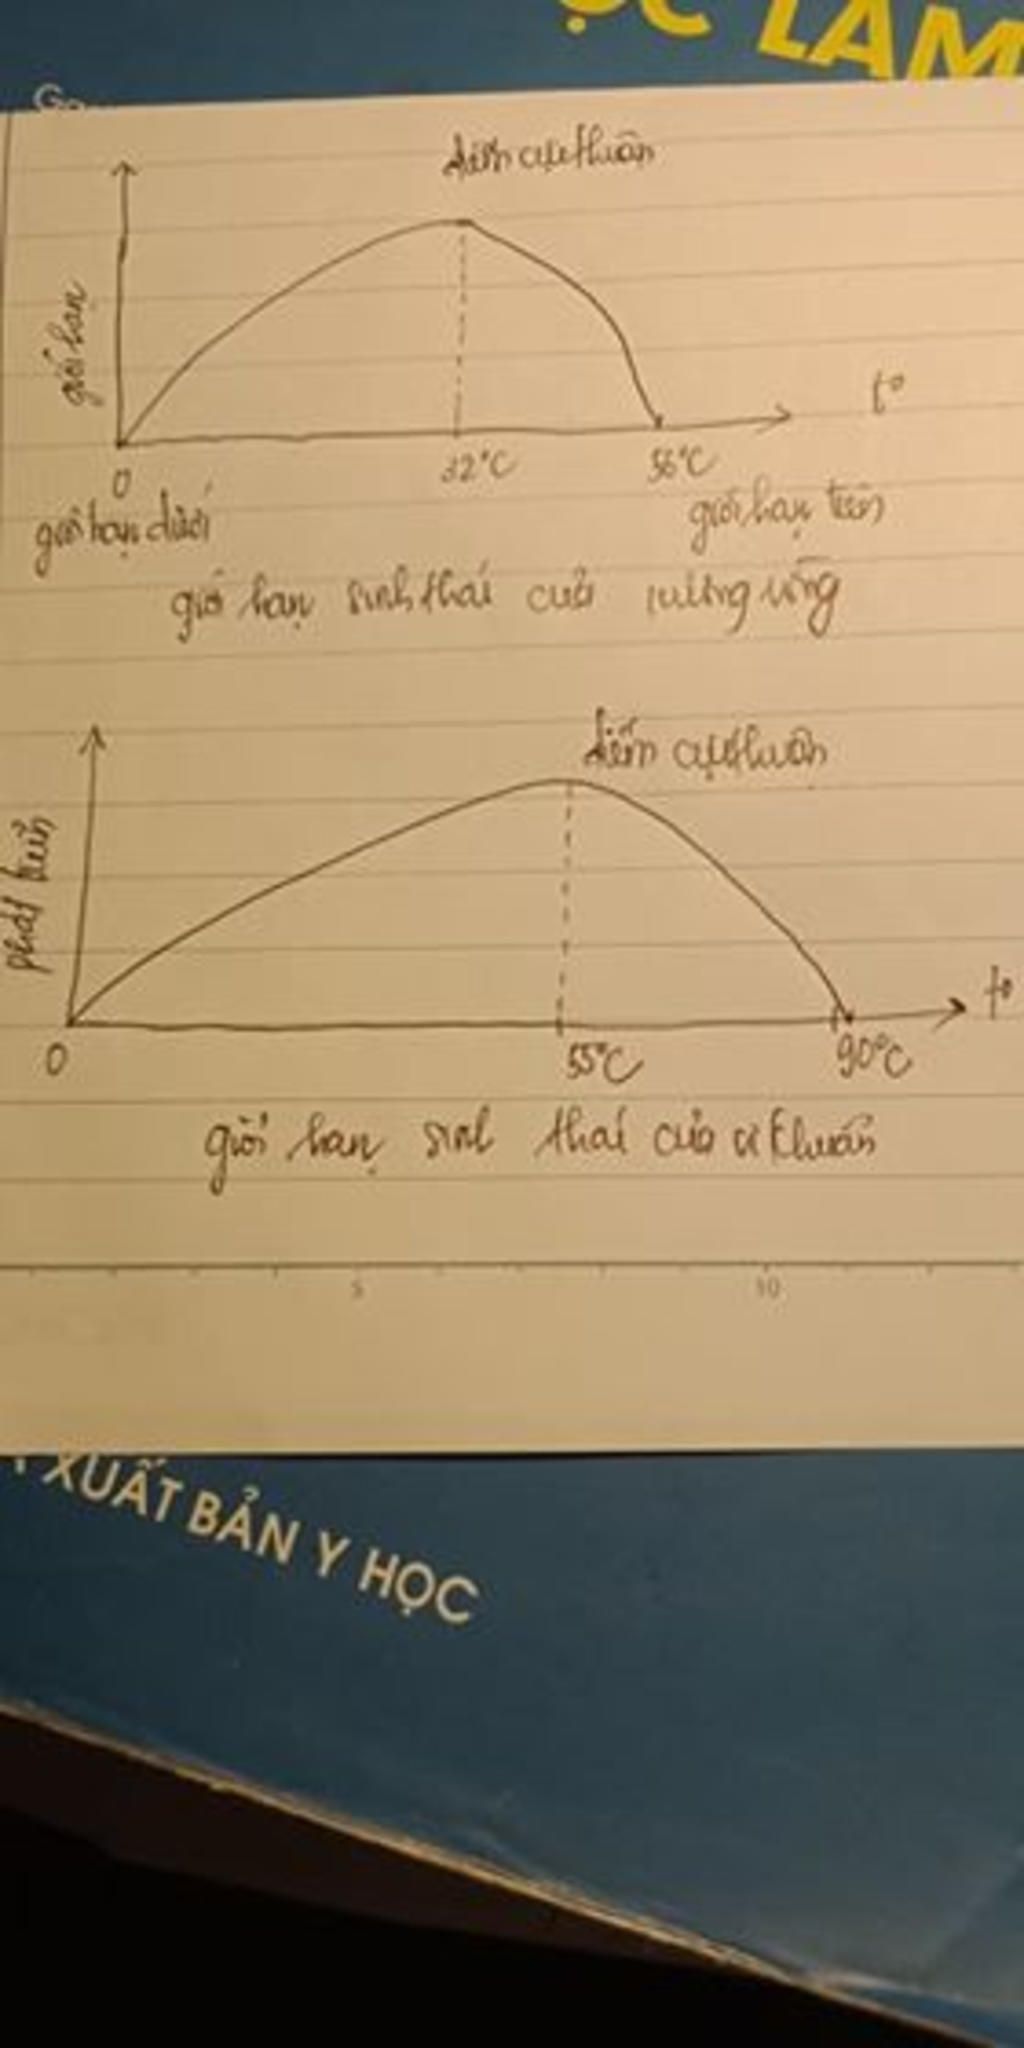 ỌC LÀM
điểm cực thuận
giới hạn
t°
0
32°C
56°C
giới hạn dưới
giới hạn trên
giới hạn sinh thái của xương rồng
điểm cực thuận
phát triển
t°
0
55°C
90°C
giới hạn sinh thái của vi khuẩn
5
10
XUẤT BẢN Y HỌC